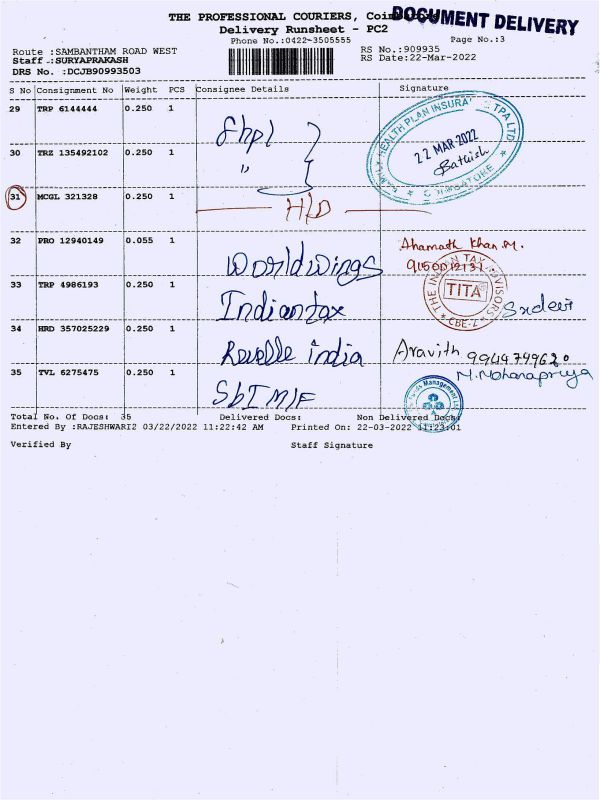 THE PROFESSIONAL COURIERS, Coimbatore
DOCUMENT DELIVERY
Delivery Runsheet - PC2
Phone No.:0422-3505555
Page No.:3
Route :SAMBANTHAM ROAD WEST
RS No.:909935
Staff :SURYAPRAKASH
RS Date:22-Mar-2022
DRS No. :DCJB90993503
S No Consignment No Weight PCS Consignee Details Signature
29 TRP 6144444 0.250 1 Fhpl
FAMILY HEALTH PLAN INSURANCE TPA LTD
22 MAR 2022
COIMBATORE
30 TRZ 135492102 0.250 1 "
31 MCGL 321328 0.250 1 H/D
32 PRO 12940149 0.055 1 Worldwings Ahamath Khan.M.
9150012131
33 TRP 4986193 0.250 1 Indiantax
THE INDIAN TAX ADVISORS
TITA
CBE-2
34 HRD 357025229 0.250 1 Revelle india Aravith 9944749620
35 TVL 6275475 0.250 1 SbI M/F M.Mohanapriya
Total No. Of Docs: 35 Delivered Docs: Non Delivered Docs:
Entered By :RAJESHWARI2 03/22/2022 11:22:42 AM Printed On: 22-03-2022 11:23:01
Verified By Staff Signature